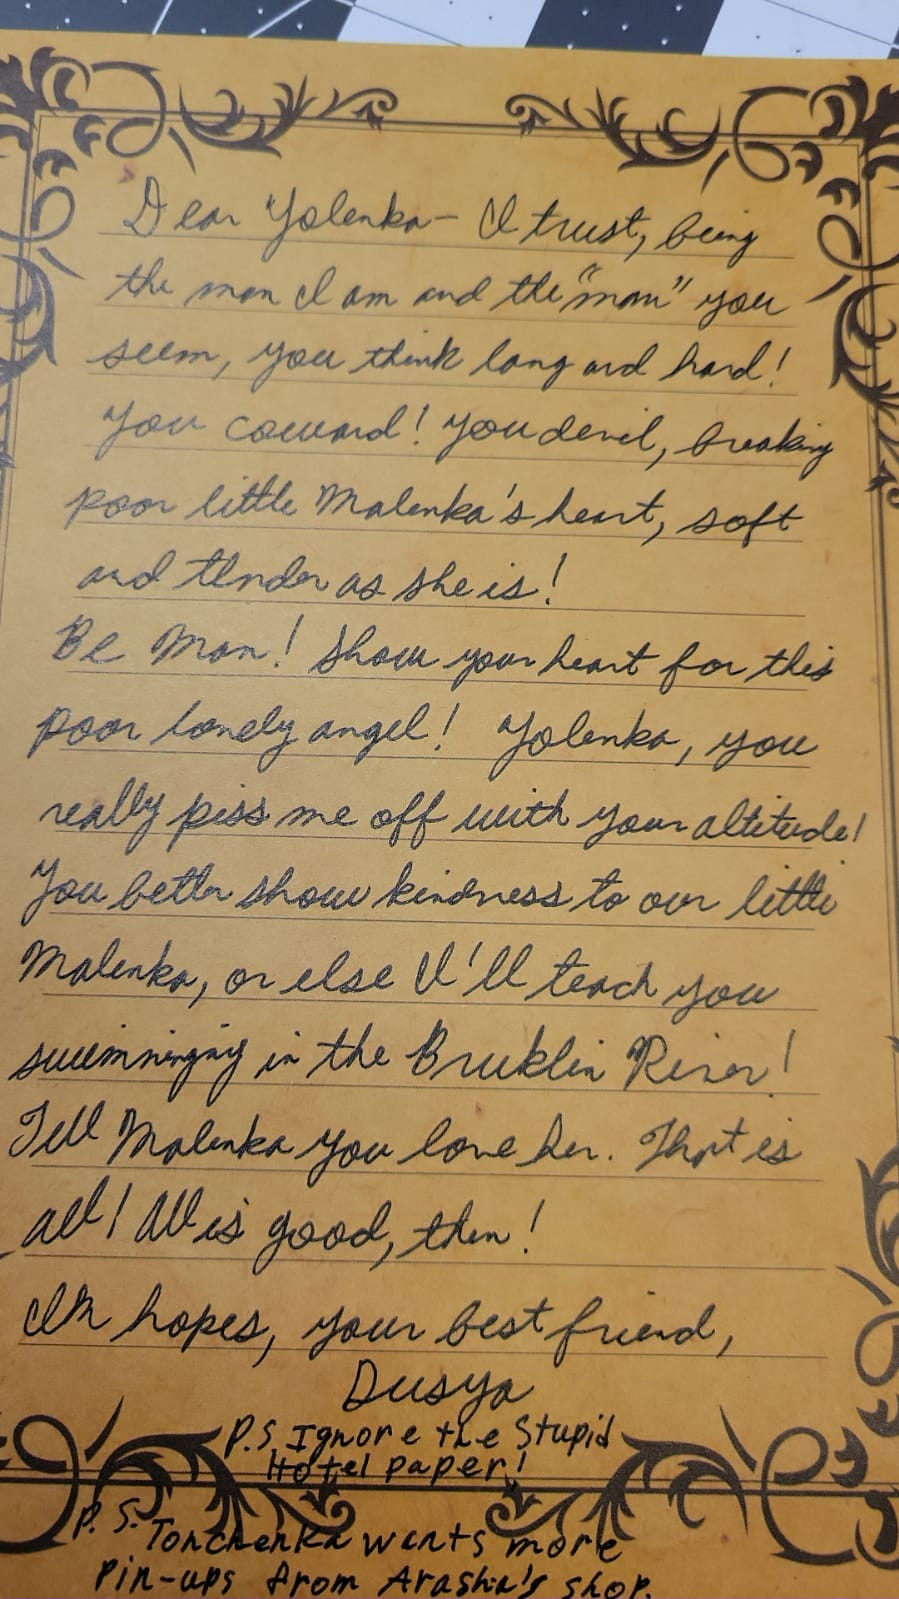 Dear Yolenka- I trust, being
the man I am and the "man" you
seem, you think long and hard!
You coward! You devil, breaking
poor little Malenka's heart, soft
and tender as she is!
Be Man! Show your heart for this
poor lonely angel! Yolenka, you
really piss me off with your altitude!
You better show kindness to our little
Malenka, or else I'll teach you
in the Bruklin River!
Tell Malenka you love her. That is
all! All is good, then!
In hopes, your best friend,
Dusya
P.S. Ignore the Stupid
Hotel paper!
P.S. Tonchenka wants more
Pin-ups from Arasha's shop.